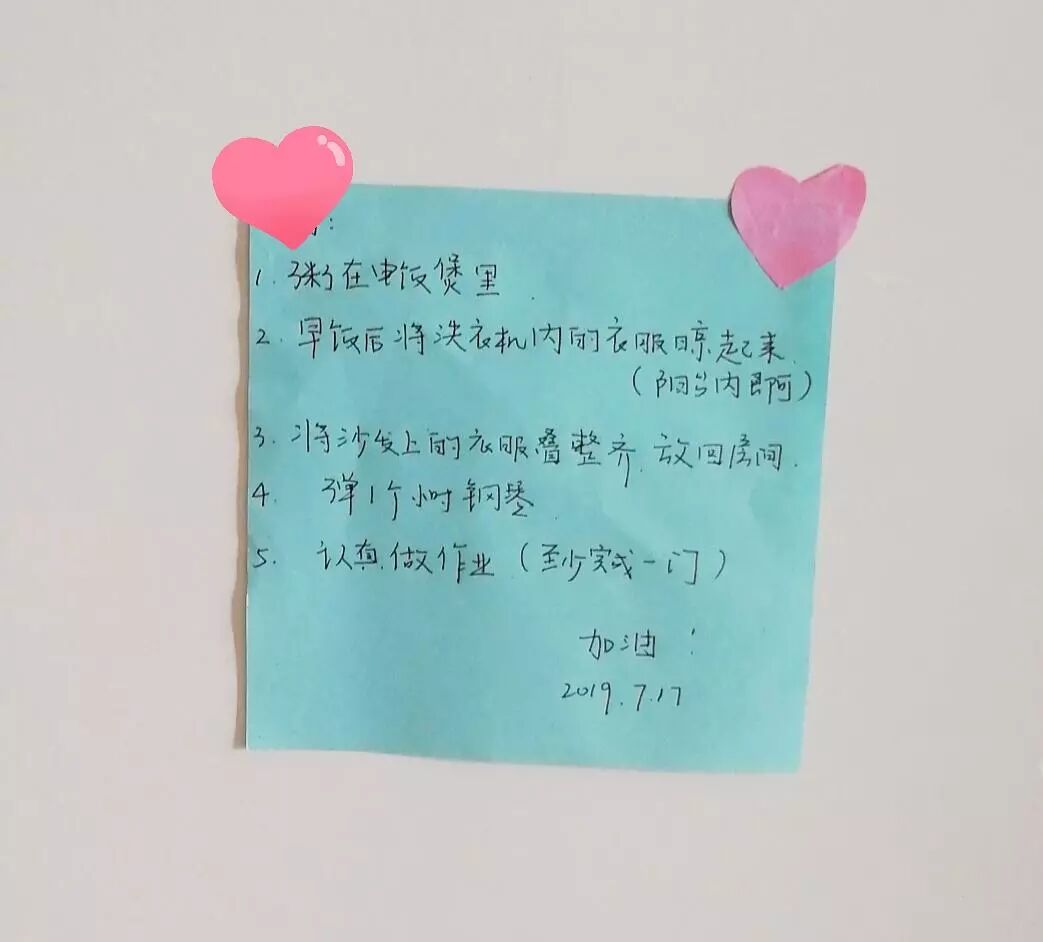 :
1. 粥在电饭煲里.
2. 早饭后将洗衣机内的衣服晾起来.
(阳台内即可)
3. 将沙发上的衣服叠整齐.放回房间.
4. 弹1个小时钢琴
5. 认真做作业(至少完成一门)
加油!
2019.7.17